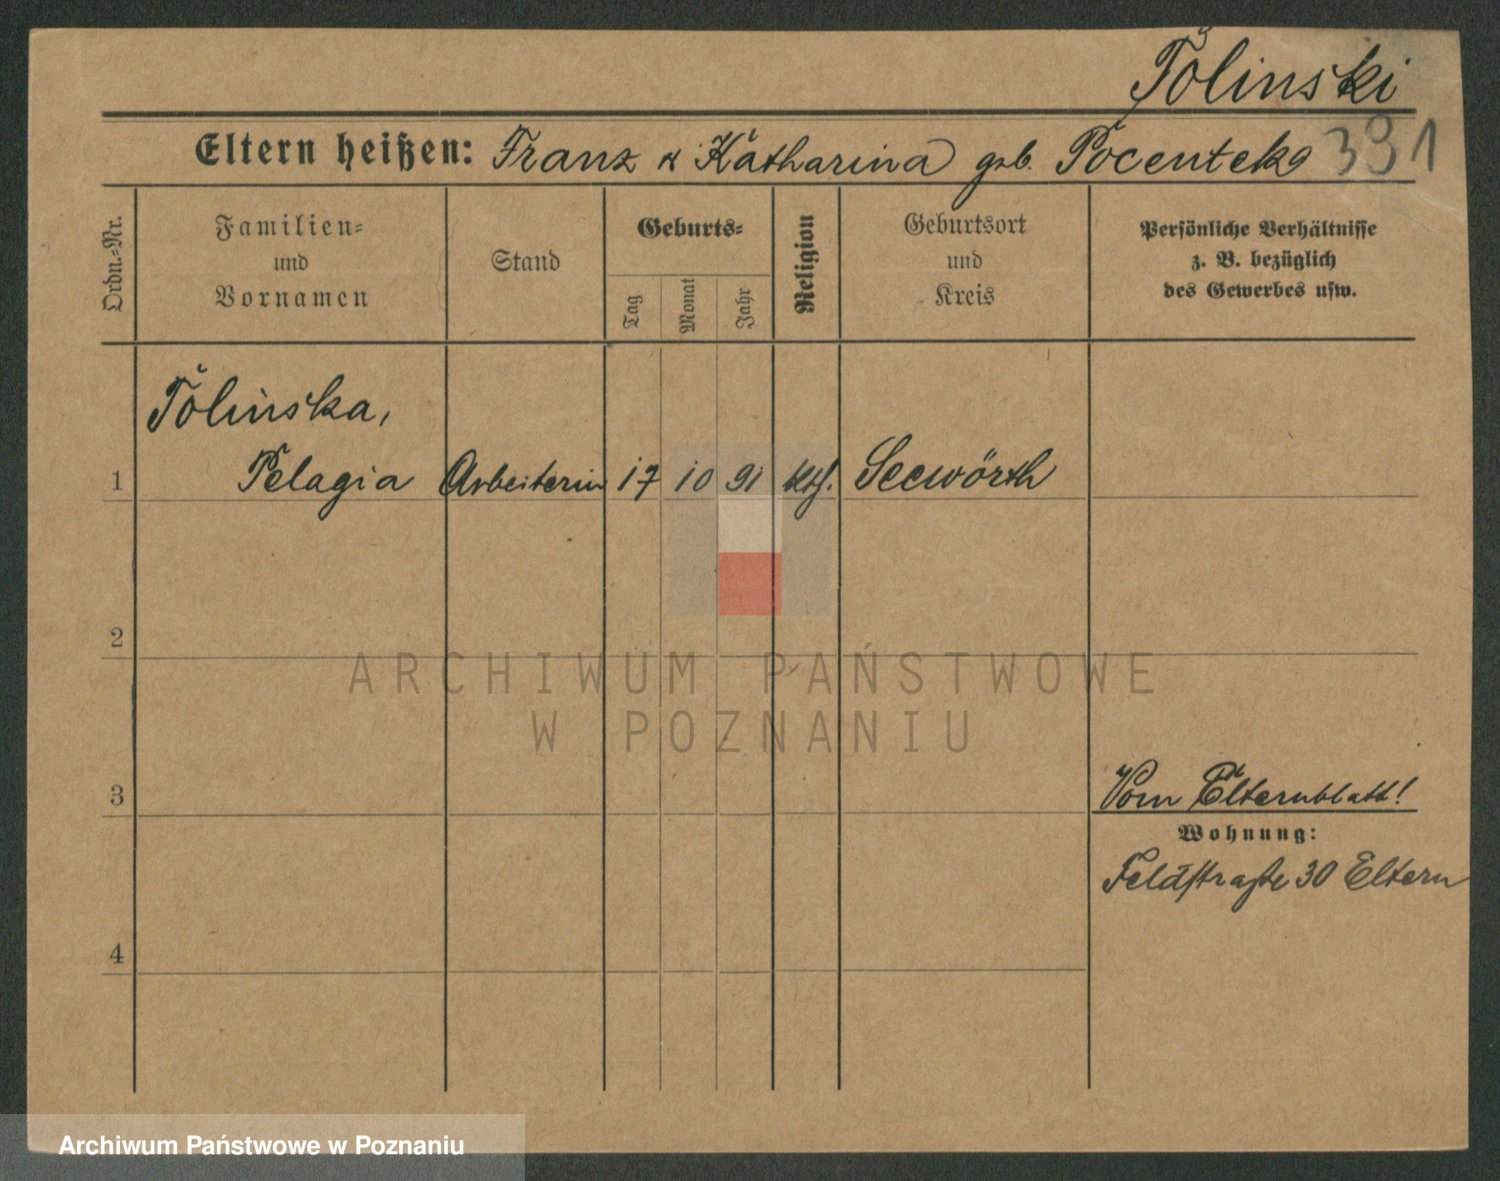 Tolinski
Eltern heißen: Franz u Katharina geb. Pocenteke 391
Ordn.-Nr.
Familien-
und
Vornamen
Stand
Geburts-
Tag
Monat
Jahr
Religion
Geburtsort
und
Kreis
Persönliche Verhältnisse
z. B. bezüglich
des Gewerbes usw.
Tolinska,
1 Pelagia Arbeiterin 17 10 91 kth. Seewörth
2
ARCHIWUM PAŃSTWOWE
W POZNANIU
3 Vom Elternblatt!
Wohnung:
Feldstraße 30 Eltern
4
Archiwum Państwowe w Poznaniu